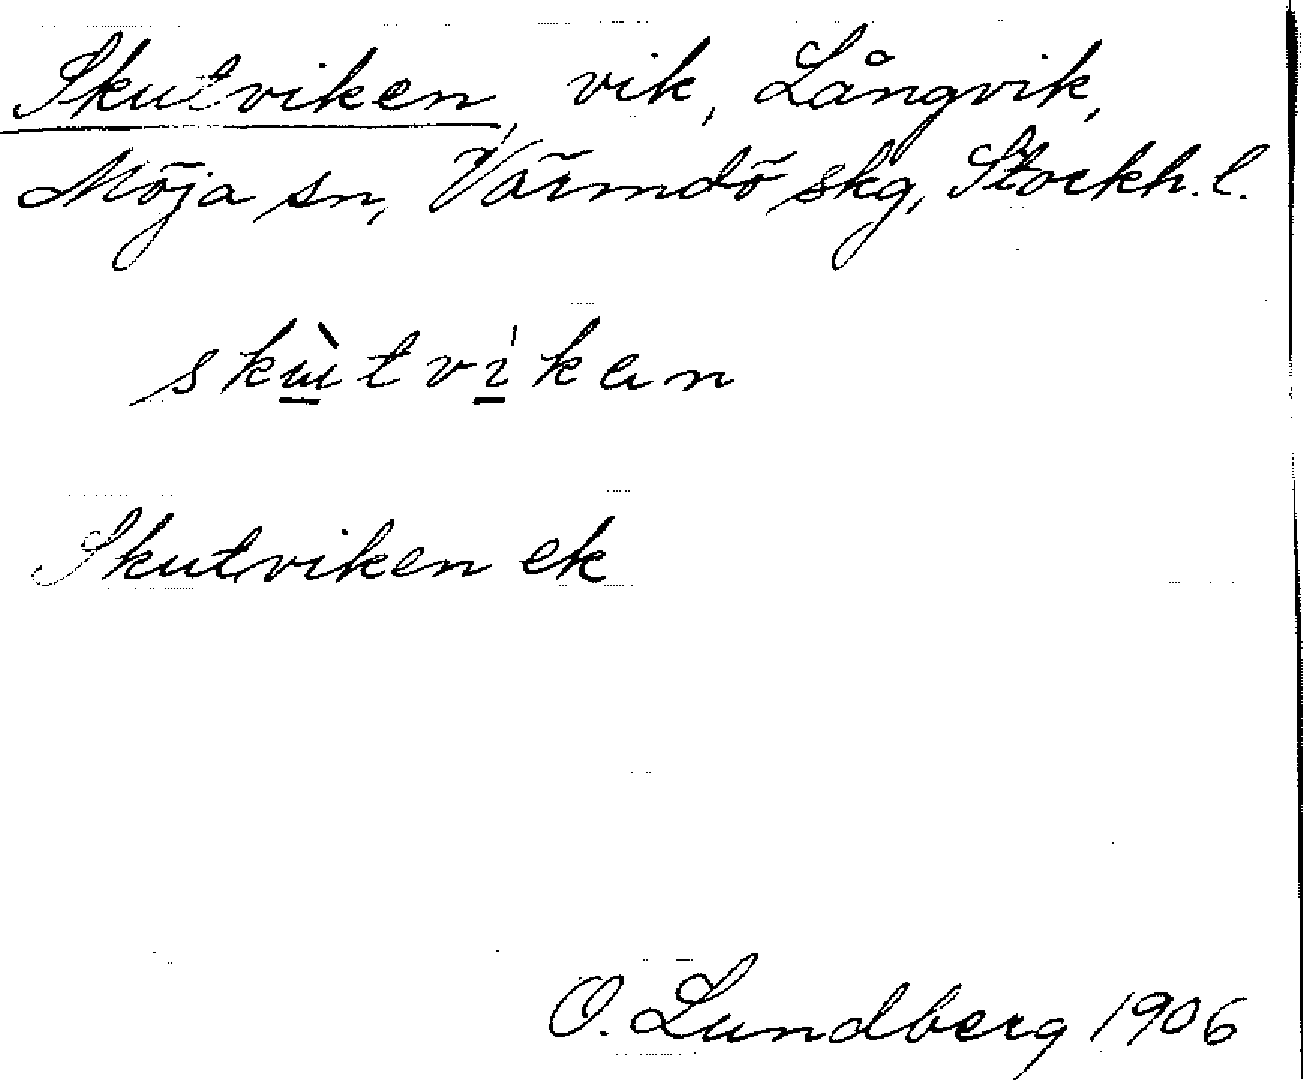 Skutviken, vik, Långvik,
Möja sn, Värmdö skg, Stockh. l.
skùtvíkan
Skutviken ek
O. Lundberg 1906